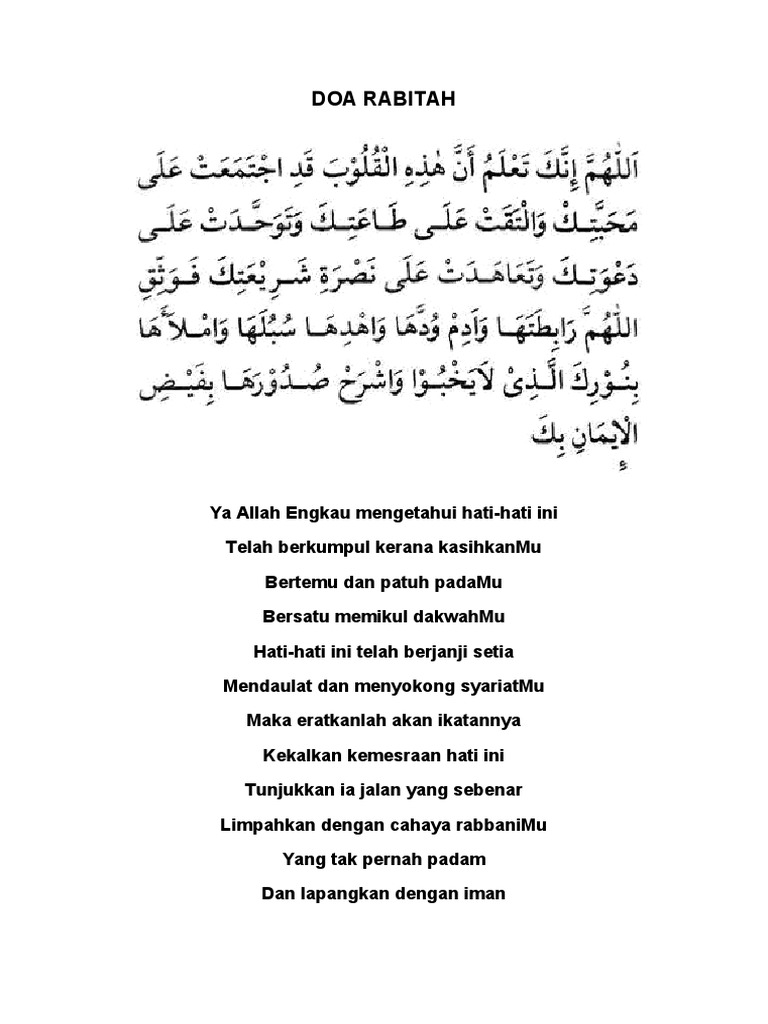 DOA RABITAH
اَللّٰهُمَّ إِنَّكَ تَعْلَمُ أَنَّ هٰذِهِ الْقُلُوْبَ قَدِ اجْتَمَعَتْ عَلَى
مَحَبَّتِكَ وَالْتَقَتْ عَلَى طَاعَتِكَ وَتَوَحَّدَتْ عَلَى
دَعْوَتِكَ وَتَعَاهَدَتْ عَلَى نَصْرَةِ شَرِيْعَتِكَ فَوَثِّقِ
اللّٰهُمَّ رَابِطَتَهَا وَاَدِمْ وُدَّهَا وَاهْدِهَا سُبُلَهَا وَامْلَأْهَا
بِنُوْرِكَ الَّذِىْ لَايَخْبُوْا وَاشْرَحْ صُدُوْرَهَا بِفَيْضِ
الْإِيمَانِ بِكَ
Ya Allah Engkau mengetahui hati-hati ini
Telah berkumpul kerana kasihkanMu
Bertemu dan patuh padaMu
Bersatu memikul dakwahMu
Hati-hati ini telah berjanji setia
Mendaulat dan menyokong syariatMu
Maka eratkanlah akan ikatannya
Kekalkan kemesraan hati ini
Tunjukkan ia jalan yang sebenar
Limpahkan dengan cahaya rabbaniMu
Yang tak pernah padam
Dan lapangkan dengan iman